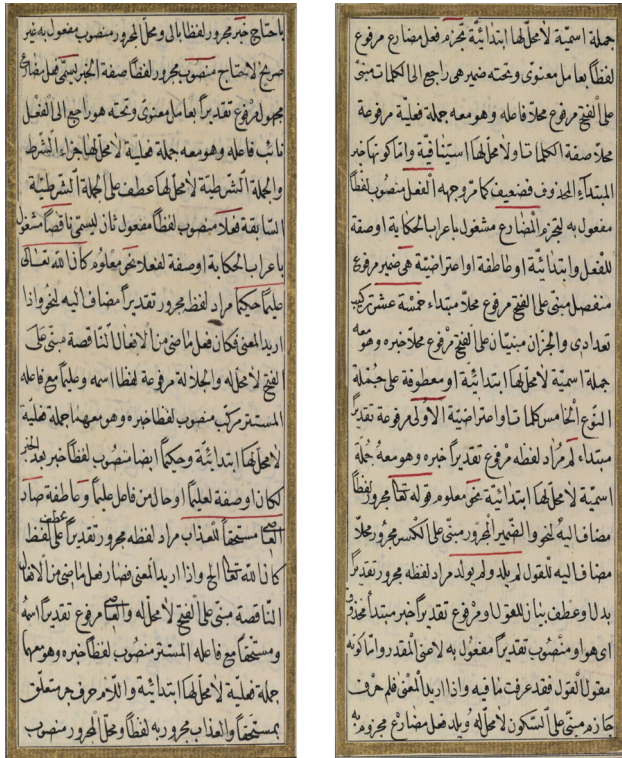 جملة اسمیّة لا محلّ لها ابتدائیّة تجزم فعل مضارع مرفوع
لفظاً بعامل معنوى وتحته ضمیر هى راجع الى الكلمات مبنىّ
على الفتح مرفوع محلاّ فاعله وهو معه جملة فعلیّة مرفوعة
محلاّ صفة الكلمات اولا محلّ لها استینافیّة وامّا كونها خبر
المبتداء المحذوف فضعیف كما مرّ وجهه الفعل منصوب لفظاً
مفعول به لتجزم المضارع مشغول باعراب الحكایة او صفة
للفعل وابتدائیّة او عاطفة او اعتراضیّة هى ضمیر مرفوع
منفصل مبنى على الفتح مرفوع محلاّ مبتداء خمسة عشر تركیب
تعدادى والجزآن مبنیّان على الفتح مرفوع محلاّ خبره وهو معه
جملة اسمیّة لا محلّ لها ابتدائیّة او معطوفة على جملة
النّوع الخامس كلمات او اعتراضیّة الاولى مرفوعة تقدیراً
مبتداء لم مراد لفظه مرفوع تقدیراً خبره وهو معه جملة
اسمیّة لا محلّ لها ابتدائیّة نحو معلوم قوله تعا مجرور لفظاً
مضاف الیه لنحو والضّمیر المجرور مبنىّ على الكسر مجرور محلاّ
مضاف الیه للقول لم یلد ولم یولد مراد لفظه مجرور تقدیراً
بدل او عطف بیان للقول او مرفوع تقدیراً خبر مبتدأ محذوف
اى هو او منصوب تقدیراً مفعول به لاعنى المقدر وامّا كونه
مقول القول فقد عرفت ما فیه واذا ارید المعنى فلم حرف
جازم مبنىّ على السّكون لا محلّ له ویلد فعل مضارع مجزوم به
باحتاج خبر مجرور لفظا بالى ومحلّ المجرور منصوب مفعول به غیر
صریح لاحتاج منصوب مجرور لفظاً صفة الخبر یسمّى فعل مضارع
مجهول مرفوع تقدیراً بعامل معنوى وتحته هو راجع الى الفعل
نائب فاعله وهو معه جملة فعلیة لا محلّ لها جزاء الشّرط
والجملة الشّرطیّة لا محلّ لها عطف على الجملة الشّرطیّة
السّابقة فعلاً منصوب لفظاً مفعول ثان لیسمّى ناقصاً مشغول
باعراب الحكایة او صفة لفعلا نحو معلوم كان الله تعالى
علیماً حكیماً مراد لفظه مجرور تقدیراً مضاف الیه لنحو واذا
ارید المعنى فكان فعل ماضى من الافعال النّاقصة مبنىّ على
الفتح لا محلّ له والجلالة مرفوعة لفظا اسمه وعلیما مع فاعله
المستتر مركّب منصوب لفظا خبره وهو معهما جملة فعلیة
لا محلّ لها ابتدائیّة وحكیماً ایضا منصوب لفظاً خبر بعد الخبر
لكان او صفة لعلیماً او حال من فاعل علیماً وعاطفة صار
العاصى مستحقّاً للعذاب مراد لفظه مجرور تقدیراً عطف على لفظ
كان الله تعا الخ واذا ارید المعنى فصار فعل ماضى من الافعال
النّاقصة مبنى على الفتح لا محلّ له والعاصى مرفوع تقدیراً اسمه
ومستحقّاً مع فاعله المستتر منصوب لفظاً خبره وهو معهما
جملة فعلیة لا محلّ لها ابتدائیّة واللاّم حرف جر متعلّق
بمستحقّاً والعذاب مجرور به لفظاً ومحلّ المجرور منصوب